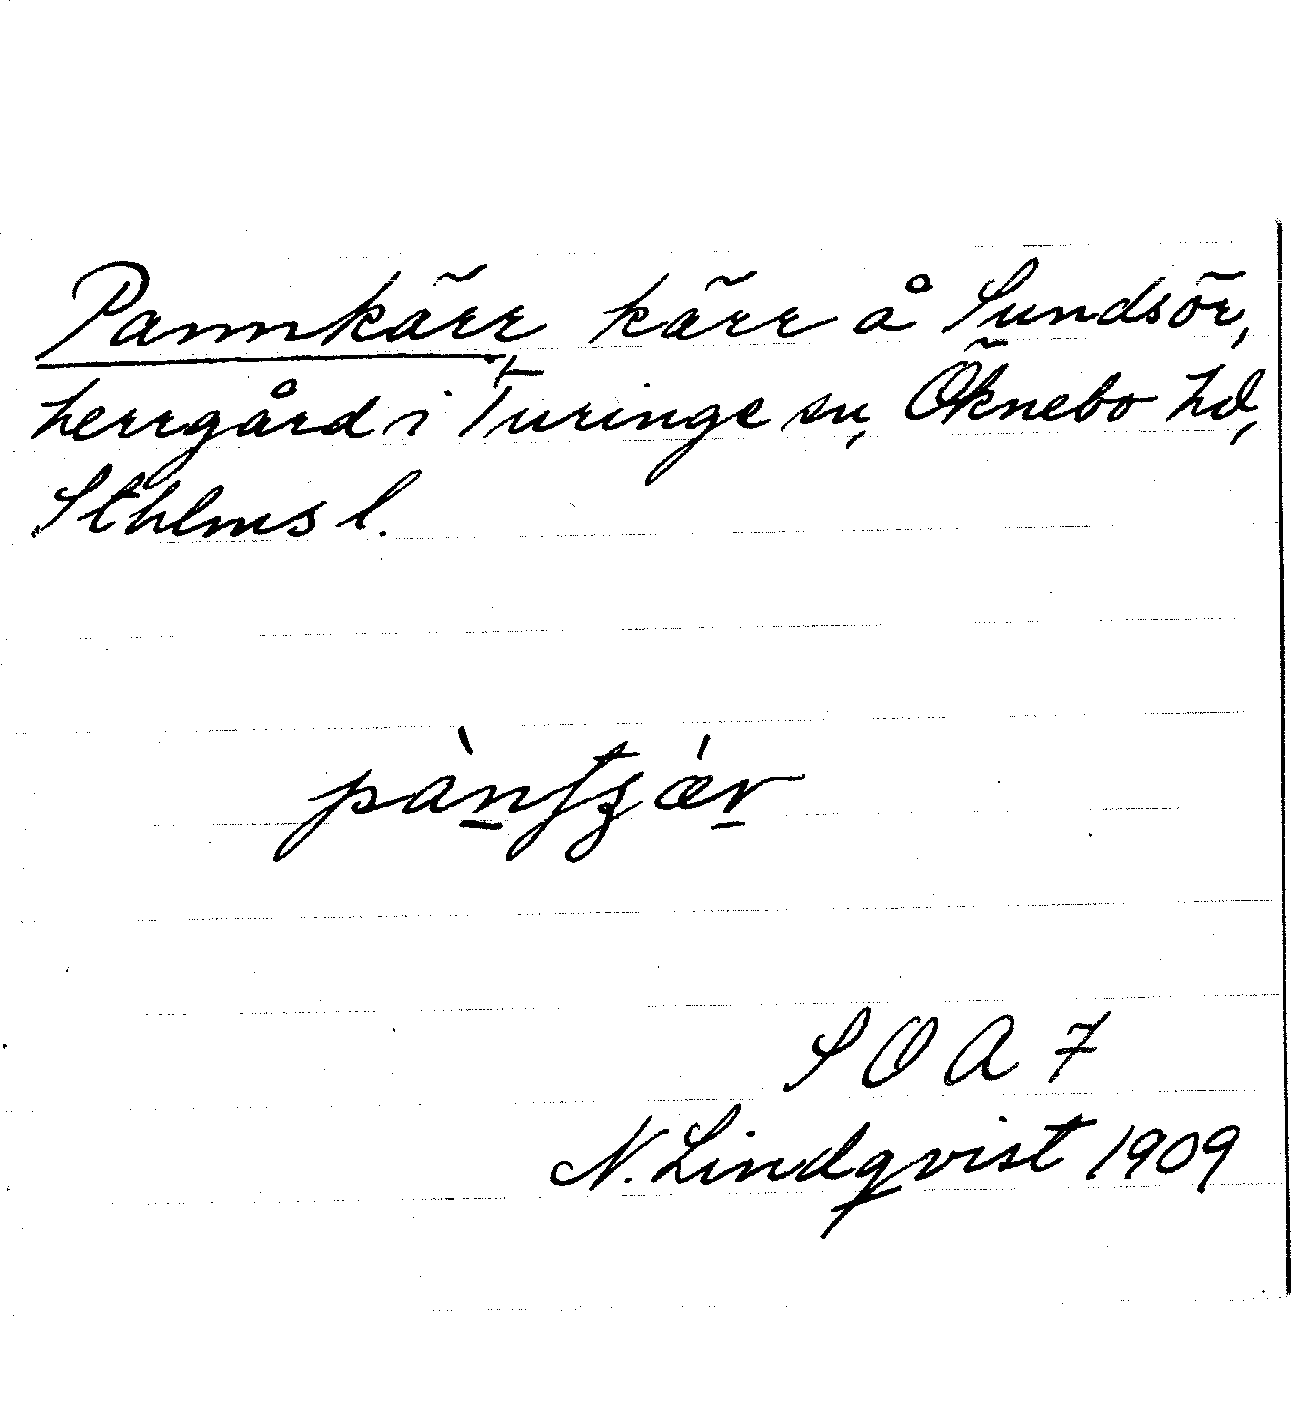 Pannkärr kärr å Sundsör,
herrgård i Turinge sn, Öknebo hd,
Sthlms l.
SOA 7
N. Lindqvist 1909